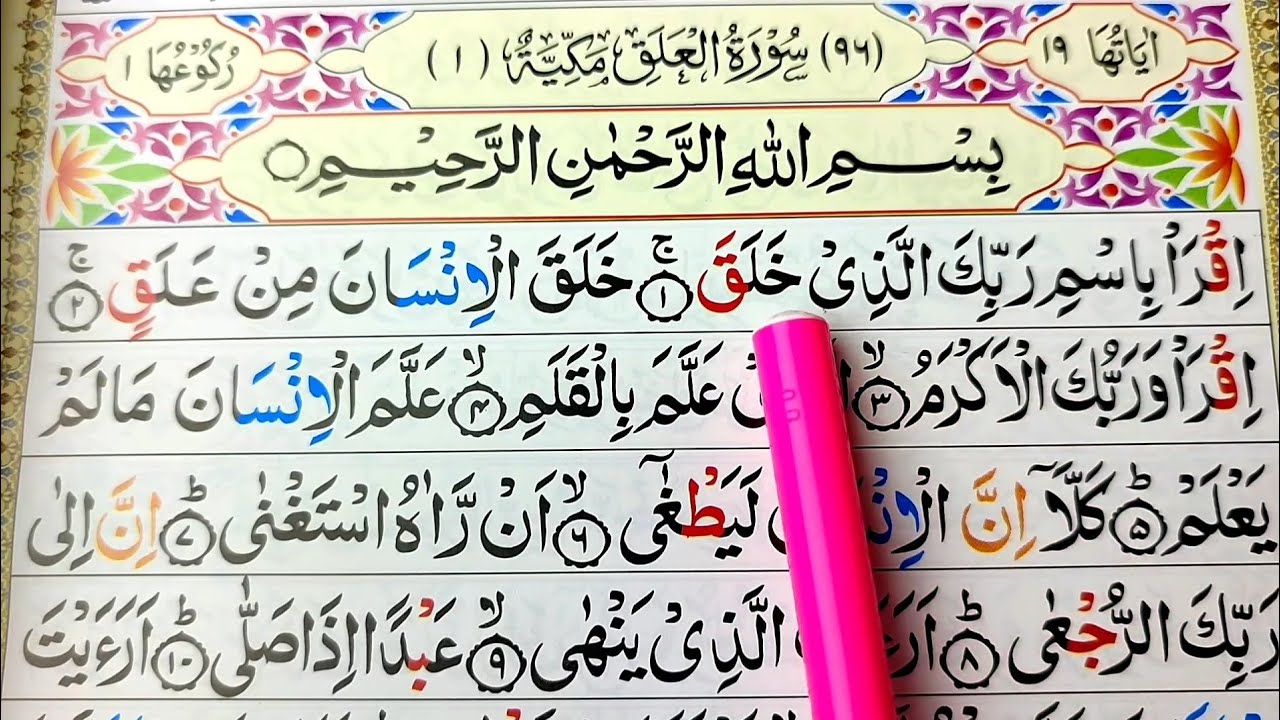 اٰيَاتُهَا ١٩ (٩٦) سُوْرَةُ الْعَلَقِ مَكِّيَّةٌ (١) رُكُوْعُهَا ١
بِسْمِ اللّٰهِ الرَّحْمٰنِ الرَّحِيْمِ ۝
اِقْرَاْ بِاسْمِ رَبِّكَ الَّذِىْ خَلَقَ ۚ‏ ١ خَلَقَ الْاِنْسَانَ مِنْ عَلَقٍ ۚ‏ ٢
اِقْرَاْ وَرَبُّكَ الْاَكْرَمُ ۙ‏ ٣ عَلَّمَ بِالْقَلَمِ ۙ‏ ۴ عَلَّمَ الْاِنْسَانَ مَا لَمْ
يَعْلَمْ ؕ‏ ۵ كَلَّاۤ اِنَّ لَيَطْغٰٓى ۙ‏ ۶ اَنْ رَّاٰهُ اسْتَغْنٰى ؕ‏ ۷ اِنَّ اِلٰى
رَبِّكَ الرُّجْعٰى ؕ‏ ۸ الَّذِىْ يَنْهٰى ۙ‏ ۹ عَبْدًا اِذَا صَلّٰى ؕ‏ ۱۰ اَرَءَيْتَ